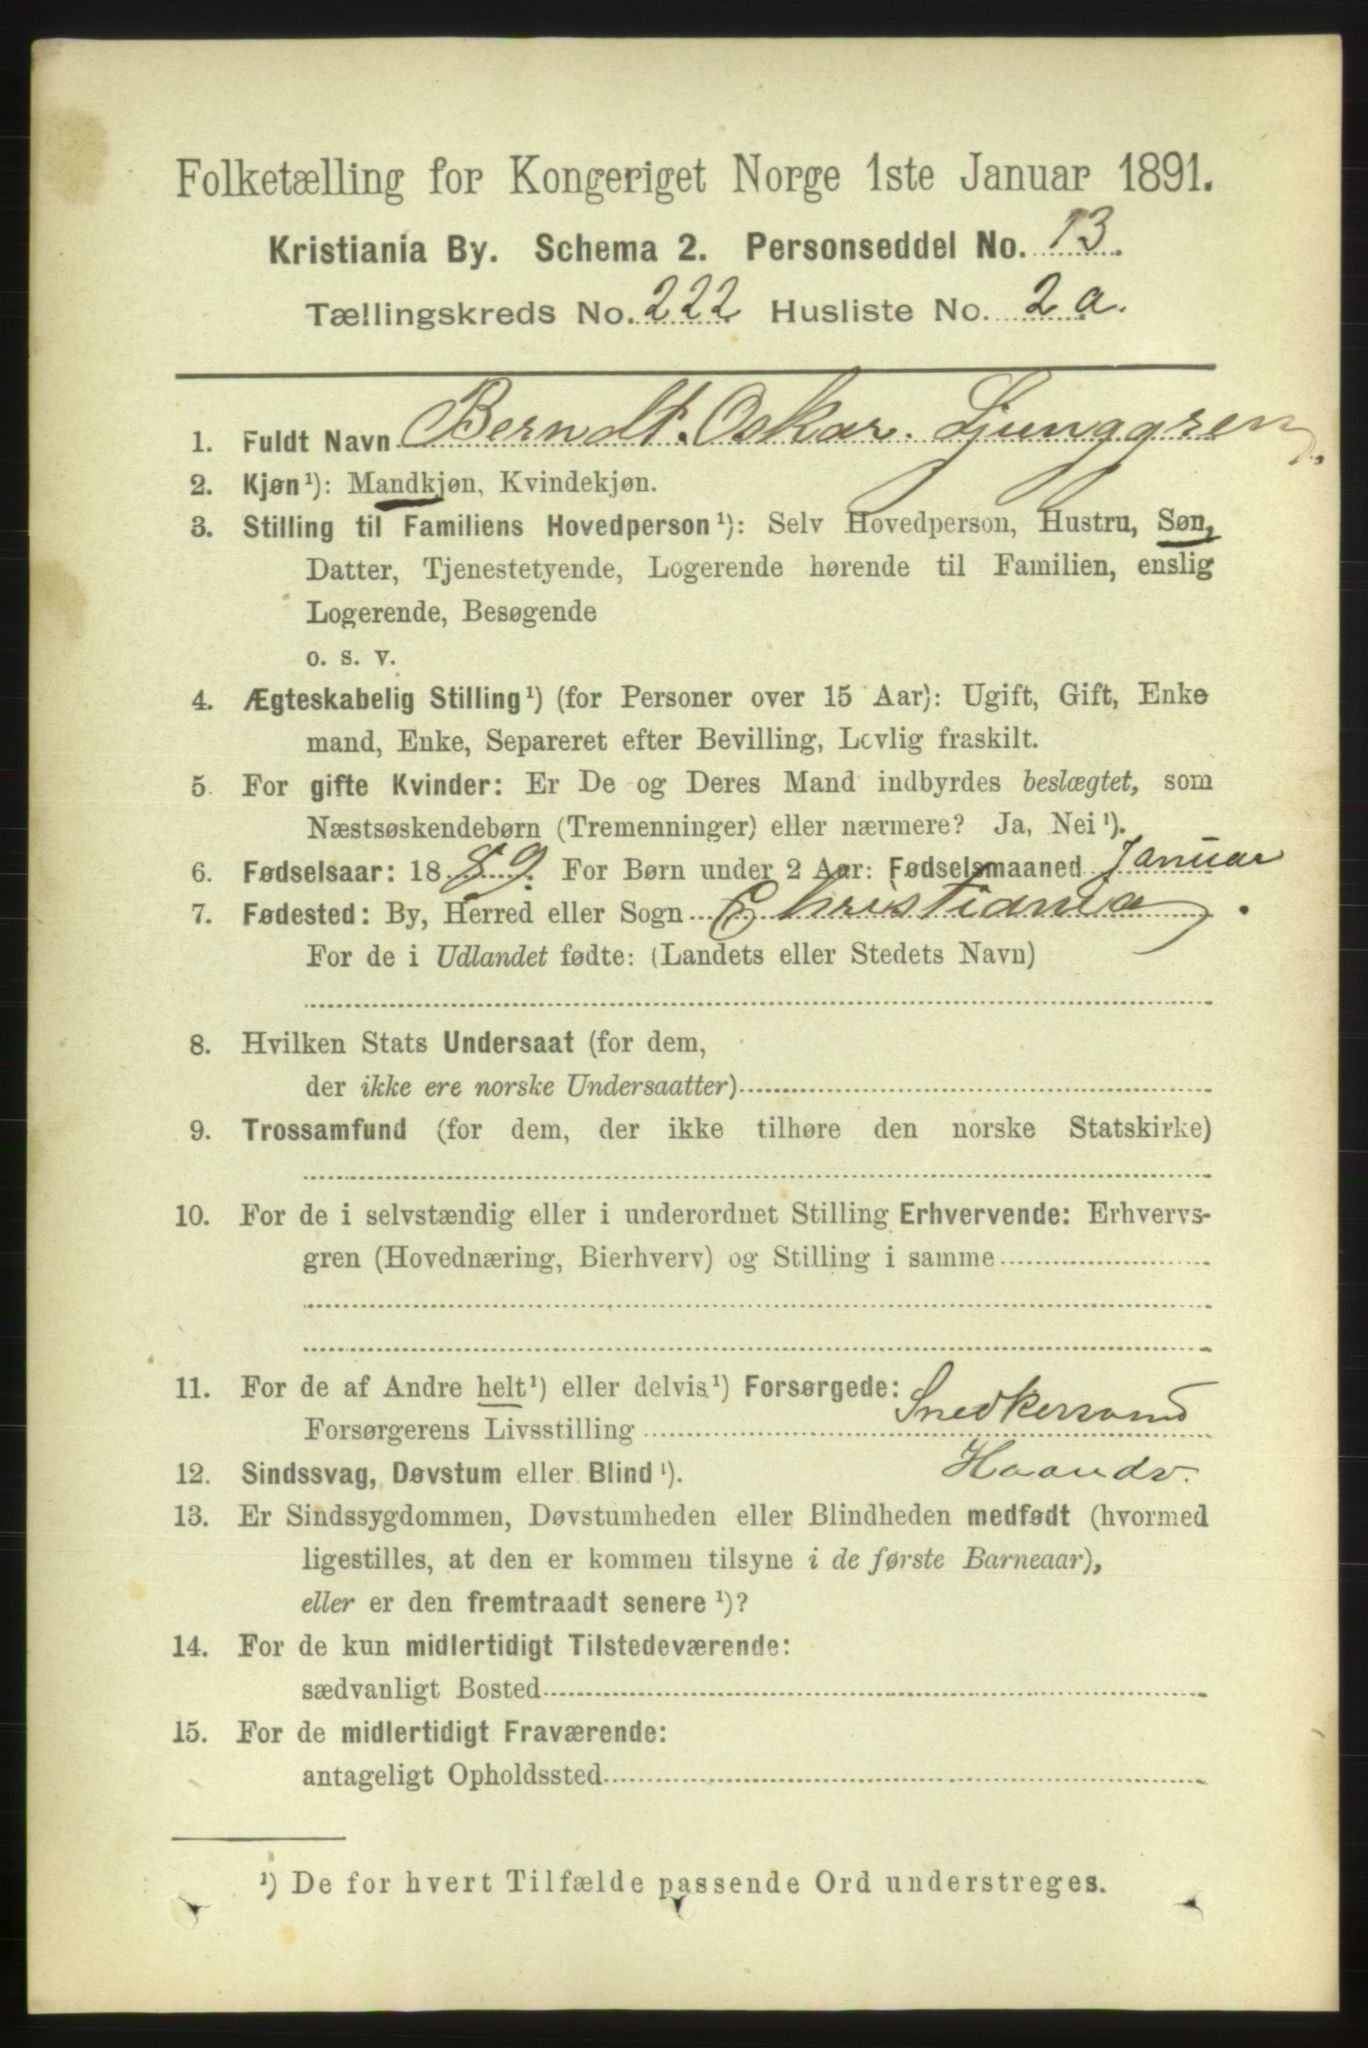 Folketælling for Kongeriget Norge 1ste Januar 1891.
Kristiania By. Schema 2. Personseddel No. 13.
Tællingskreds No. 222 Husliste No. 2 a.
1. Fuldt Navn Berndt. Oskar. Ljunggren.
2. Kjøn¹): Mandkjøn, Kvindekjøn.
3. Stilling til Familiens Hovedperson¹): Selv Hovedperson, Hustru, Søn,
Datter, Tjenestetyende, Logerende hørende til Familien, enslig
Logerende, Besøgende
o. s. v.
4. Ægteskabelig Stilling¹) (for Personer over 15 Aar): Ugift, Gift, Enke
mand, Enke, Separeret efter Bevilling, Lovlig fraskilt.
5. For gifte Kvinder: Er De og Deres Mand indbyrdes beslægtet, som
Næstsøskendebørn (Tremenninger) eller nærmere? Ja, Nei¹).
6. Fødselsaar: 1889. For Børn under 2 Aar: Fødselsmaaned Januar
7. Fødested: By, Herred eller Sogn Christiania.
For de i Udlandet fødte: (Landets eller Stedets Navn)
8. Hvilken Stats Undersaat (for dem,
der ikke ere norske Undersaatter)
9. Trossamfund (for dem, der ikke tilhøre den norske Statskirke)
10. For de i selvstændig eller i underordnet Stilling Erhvervende: Erhvervs-
gren (Hovednæring, Bierhverv) og Stilling i samme
11. For de af Andre helt¹) eller delvis¹) Forsørgede:
Forsørgerens Livsstilling Snedkersvend
Haandv.
12. Sindssvag, Døvstum eller Blind¹).
13. Er Sindssygdommen, Døvstumheden eller Blindheden medfødt (hvormed
ligestilles, at den er kommen tilsyne i de første Barneaar),
eller er den fremtraadt senere¹)?
14. For de kun midlertidigt Tilstedeværende:
sædvanligt Bosted
15. For de midlertidigt Fraværende:
antageligt Opholdssted
¹) De for hvert Tilfælde passende Ord understreges.